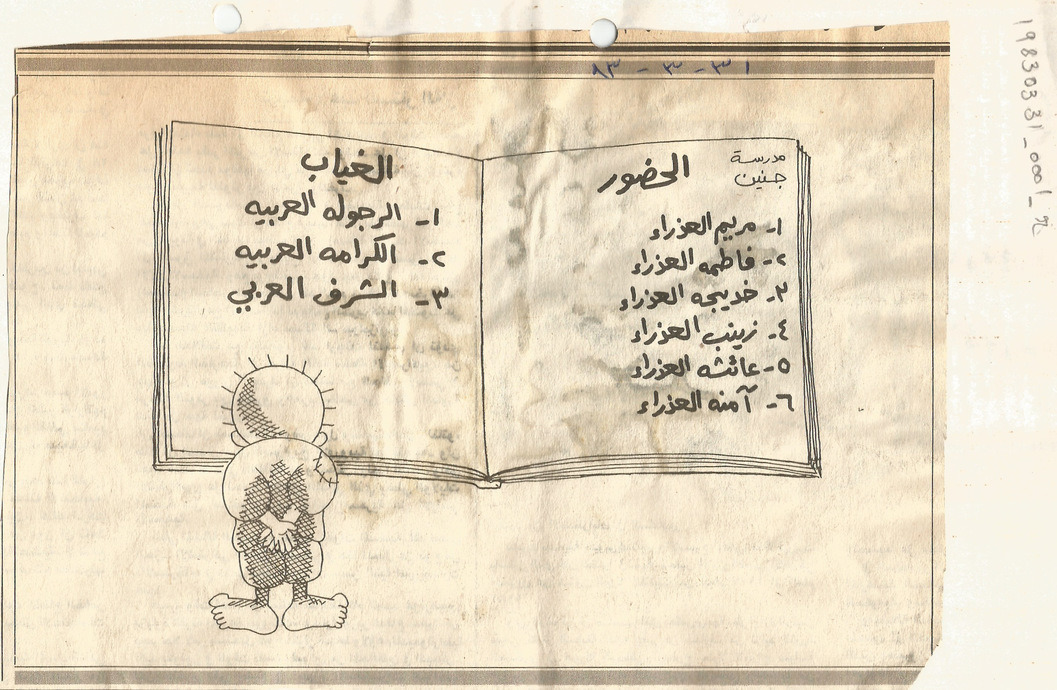 ٣١-٣-٨٣
مدرسة
جنين
الحضور
١- مريم العذراء
٢- فاطمه العذراء
٣- خديجه العذراء
٤- زينب العذراء
٥- عائشه العذراء
٦- آمنه العذراء
الغياب
١- الرجوله العربيه
٢- الكرامه العربيه
٣- الشرف العربي
19830331_0001_